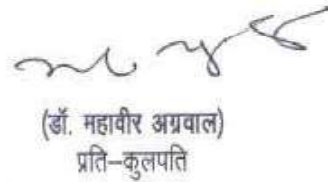 (डॉ. महावीर अग्रवाल)
प्रति–कुलपति